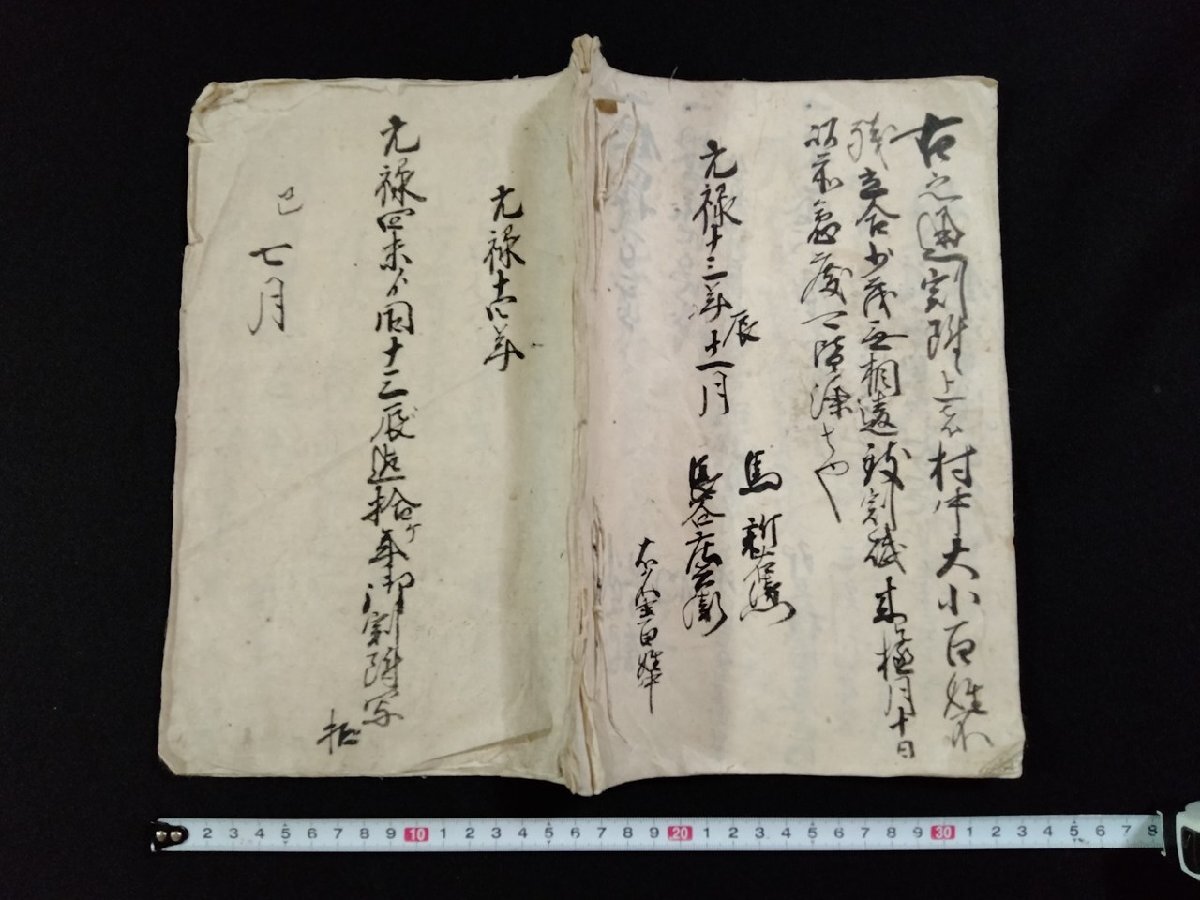 右之通割附上者村中大小百姓不
残立合少茂無相違致割儀来極月十日
以前急度可皆済者也
元禄十三年辰十一月
馬 新
惣百姓中
元禄十四年
元禄四未ゟ同十三辰迄拾ヶ年御割附写
巳七月
2 3 4 5 6 7 8 9 10 1 2 3 4 5 6 7 8 9 20 1 2 3 4 5 6 7 8 9 30 1 2 3 4 5 6 7 8